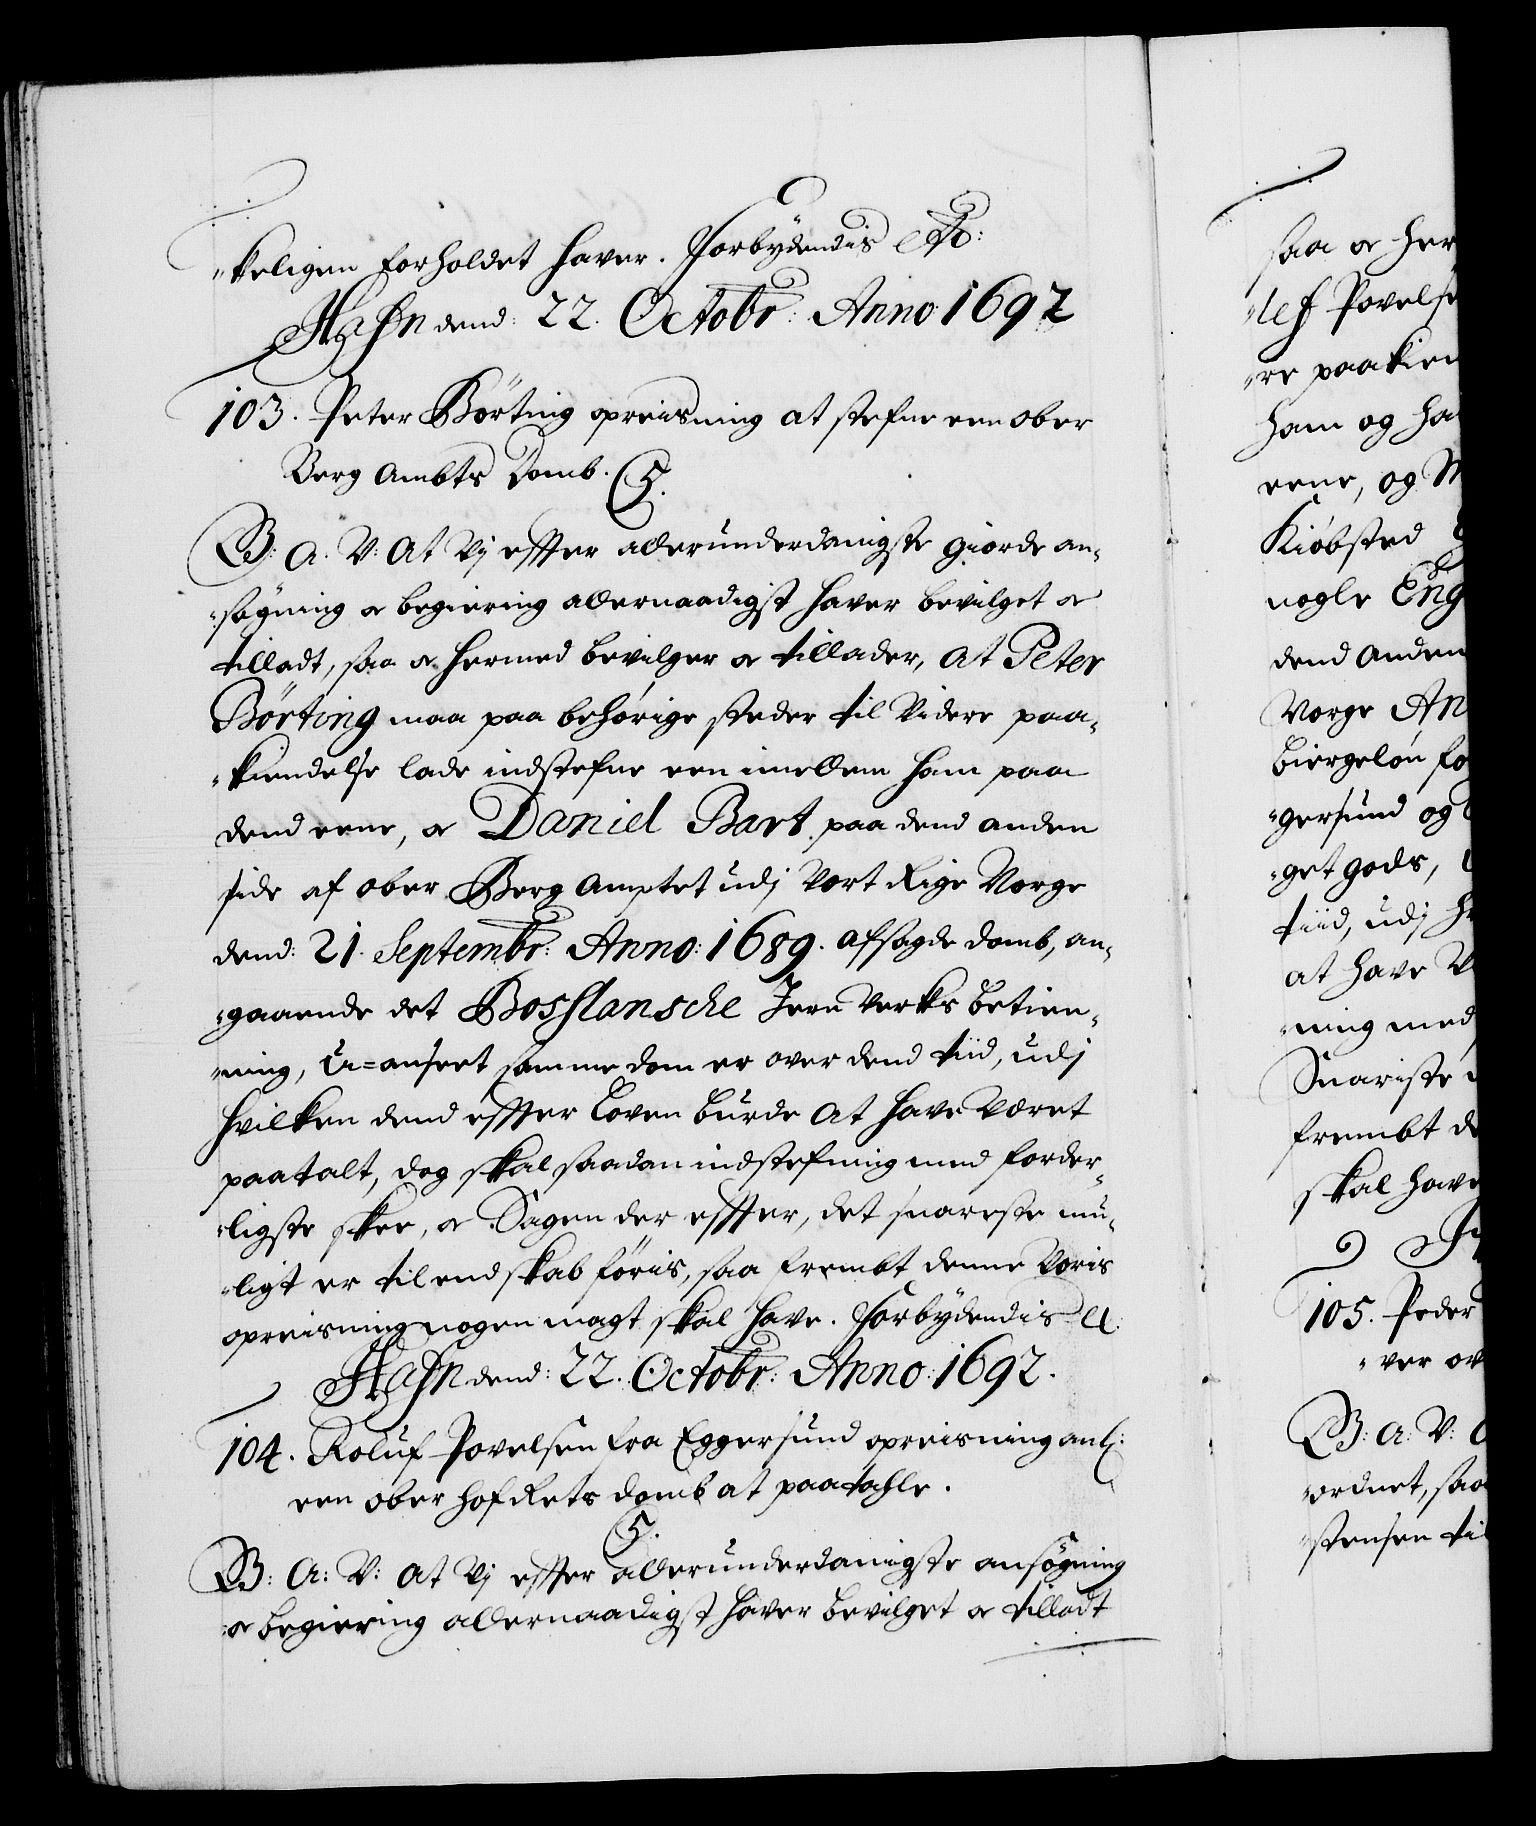 "keligen forholdet haver. Forbydendis etc:
Hafn dend: 22. Octobr: Anno 1692
103. Peter Börting opreisning at stefne een ober
Berg Ambts Domb. 5.
B: A: V: At Vj effter allerunderdanigste giorde an„
„søgning oc begiering allernaadigst haver bevilget oc
tilladt, saa oc hermed bevilger oc tillader, at Peter
Börting maa paa behørige steder til Videre paa„
„kiendelse lade indstefne een imellem ham paa
dend eene, oc Daniel Bart paa dend anden
side af ober Berg Amptet udj Vort Rige Norge
dend: 21. Septembr: Anno: 1689. afsagde domb, an„
„gaaende det Bosslansche Jern Verks betien„
„ning, U=anseet samme dom er over dend tiid, udj
hvilken dend effter Loven burde at have Været
paatalt, dog skal saadan indstefning med forder„
„ligste skee, oc Sagen der effter, det snareste mu„
„ligt er til endskab føris, saa frembt denne Voris
opreisning nogen magt skal have. Forbydendis etc:
Hafn dend: 22. Octobr: Anno: 1692.
104. Roluf Povelsen fra Eggersund opreisning anl:
een ober hof Rets domb at paatahle.
5.
B: A: V: At Vj effter allerunderdanigste ansøgning
oc begiering allernaadigst haver bevilget oc tilladt
saa oc her
„lef Povelse
„re paakien
ham og ha
eene, og
Kiøbsted
nogle Eng
dend anden
Norge An
Biergeløn fo
„gersund og
„get gods,
tiid, udj h
at have V
„ning med
Snariste
frembt de
skal have
105. Peder
„ver ov
B: A: V:
„ordnet, saa
„stensen til